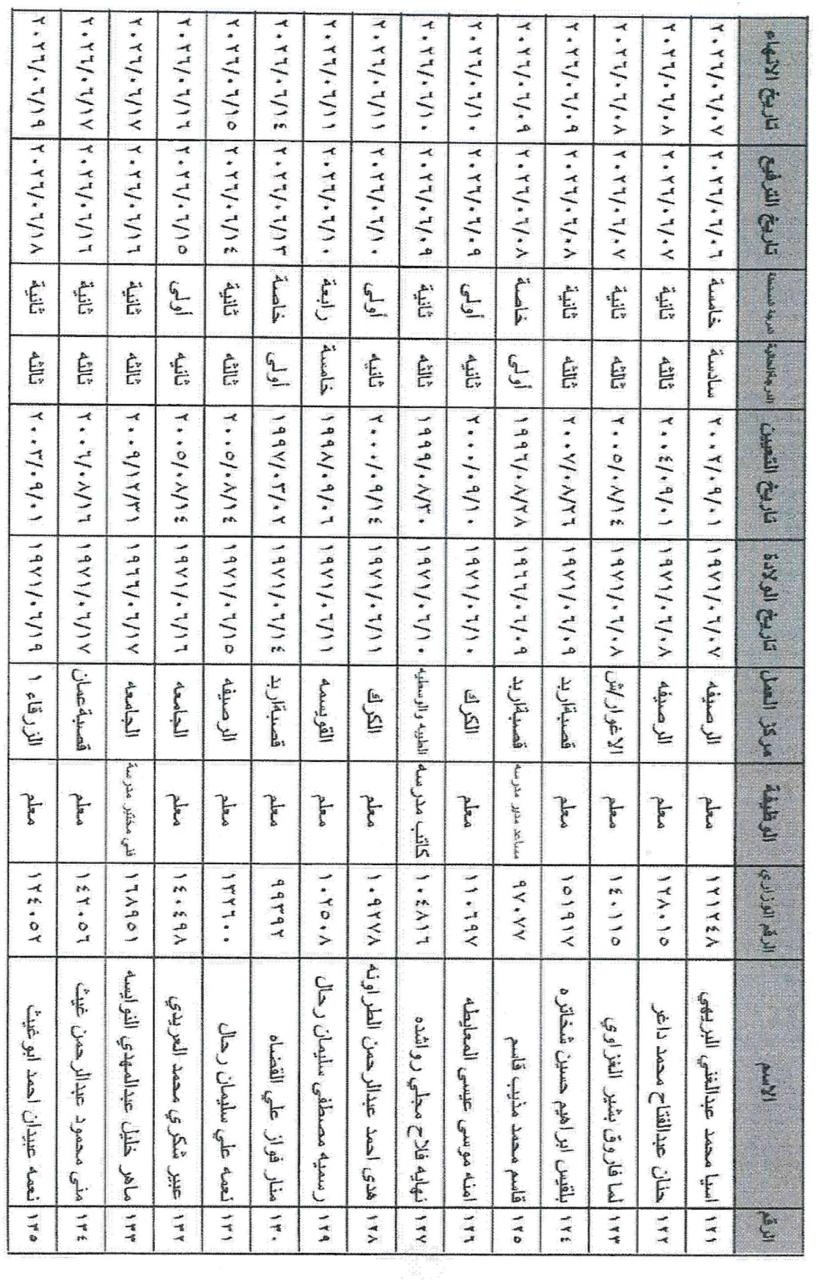 الرقم الاسم الرقم الوزاري الوظيفة مركز العمل تاريخ الولادة تاريخ التعيين الدرجة الحالية تاريخ الترفيع تاريخ الانهاء
١٢١ اسيا محمد عبدالغني البريهي ١٢١٢٤٨ معلم الرصيفه ١٩٧١/٠٦/٠٧ ٢٠٠٢/٠٩/٠١ سادسة خامسة ٢٠٢٦/٠٦/٠٦ ٢٠٢٦/٠٦/٠٧
١٢٢ حنان عبدالفتاح محمد داغر ١٢٨٠١٥ معلم الرصيفه ١٩٧١/٠٦/٠٨ ٢٠٠٤/٠٩/٠١ ثالثه ثانية ٢٠٢٦/٠٦/٠٧ ٢٠٢٦/٠٦/٠٨
١٢٣ لما فاروق بشير الغزاوي ١٤٠١١٥ معلم الاغوار/ش ١٩٧١/٠٦/٠٨ ٢٠٠٥/٠٨/١٤ ثالثه ثانية ٢٠٢٦/٠٦/٠٧ ٢٠٢٦/٠٦/٠٨
١٢٤ بلقيس ابراهيم حسين شخاتره ١٥١٩١٧ معلم قصبةاربد ١٩٧١/٠٦/٠٩ ٢٠٠٧/٠٨/٢٦ ثالثه ثانية ٢٠٢٦/٠٦/٠٨ ٢٠٢٦/٠٦/٠٩
١٢٥ قاسم محمد مذيب قاسم ٩٧٠٧٧ مساعد مدير مدرسه قصبةاربد ١٩٦٦/٠٦/٠٩ ١٩٩٦/٠٨/٢٨ أولى خاصة ٢٠٢٦/٠٦/٠٨ ٢٠٢٦/٠٦/٠٩
١٢٦ امنه موسى عيسى المعايطه ١١٠٦٩٧ معلم الكرك ١٩٧١/٠٦/١٠ ٢٠٠٠/٠٩/١٠ ثانيه أولى ٢٠٢٦/٠٦/٠٩ ٢٠٢٦/٠٦/١٠
١٢٧ نهايه فلاح مجلي رواشده ١٠٤٨١٦ كاتب مدرسه الطيبه والوسطيه ١٩٧١/٠٦/١٠ ١٩٩٩/٠٨/٣٠ ثالثه ثانية ٢٠٢٦/٠٦/٠٩ ٢٠٢٦/٠٦/١٠
١٢٨ هدى احمد عبدالرحمن الطراونه ١٠٩٢٧٨ معلم الكرك ١٩٧١/٠٦/١١ ٢٠٠٠/٠٩/١٤ ثانيه أولى ٢٠٢٦/٠٦/١٠ ٢٠٢٦/٠٦/١١
١٢٩ رسميه مصطفى سليمان رحال ١٠٢٥٠٨ معلم القويسمه ١٩٧١/٠٦/١١ ١٩٩٨/٠٩/٠٦ خامسة رابعة ٢٠٢٦/٠٦/١٠ ٢٠٢٦/٠٦/١١
١٣٠ منار فواز علي القضاه ٩٩٣٩٢ معلم قصبةاربد ١٩٧١/٠٦/١٤ ١٩٩٧/٠٣/٠٢ أولى خاصة ٢٠٢٦/٠٦/١٣ ٢٠٢٦/٠٦/١٤
١٣١ نعمه علي سليمان رحال ١٣٢٦٠٠ معلم الرصيفه ١٩٧١/٠٦/١٥ ٢٠٠٥/٠٨/١٤ ثالثه ثانية ٢٠٢٦/٠٦/١٤ ٢٠٢٦/٠٦/١٥
١٣٢ عبير شكري محمد العريدي ١٤٠٤٩٨ معلم الجامعه ١٩٧١/٠٦/١٦ ٢٠٠٥/٠٨/١٤ ثانيه أولى ٢٠٢٦/٠٦/١٥ ٢٠٢٦/٠٦/١٦
١٣٣ ماهر خليل عبدالمهدي النوايسه ١٦٨٩٥١ فني مختبر مدرسة الجامعه ١٩٦٦/٠٦/١٧ ٢٠٠٩/١٢/٣١ ثالثه ثانية ٢٠٢٦/٠٦/١٦ ٢٠٢٦/٠٦/١٧
١٣٤ منى محمود عبدالرحمن غيث ١٤٢٠٥٦ معلم قصبةعمان ١٩٧١/٠٦/١٧ ٢٠٠٦/٠٨/١٦ ثالثه ثانية ٢٠٢٦/٠٦/١٦ ٢٠٢٦/٠٦/١٧
١٣٥ نعمه عبيدان احمد ابوغيث ١٢٤٠٥٢ معلم الزرقاء ١ ١٩٧١/٠٦/١٩ ٢٠٠٣/٠٩/٠١ ثالثه ثانية ٢٠٢٦/٠٦/١٨ ٢٠٢٦/٠٦/١٩